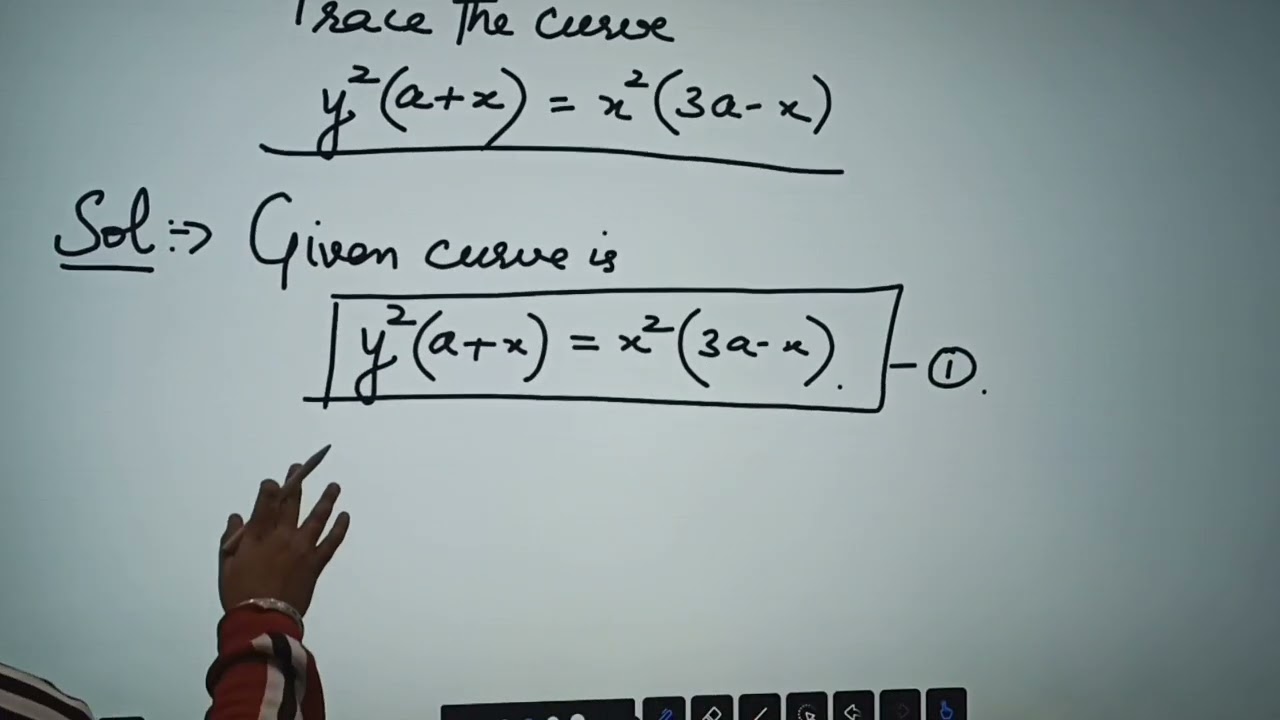 Trace The curve
y²(a+x) = x²(3a-x)
Sol :-> Given curve is
y²(a+x) = x²(3a-x). - ①.